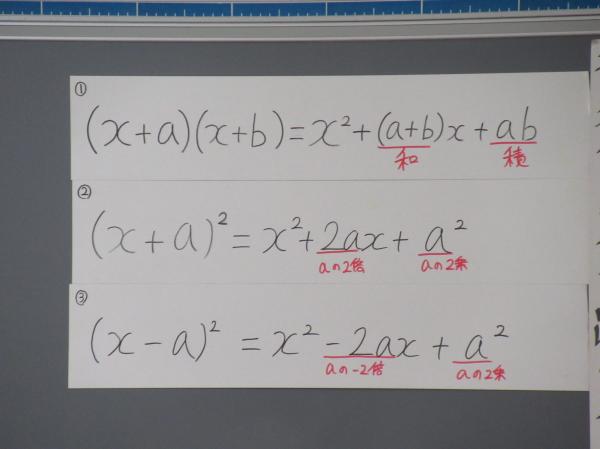 ①
(x+a)(x+b)=x²+(a+b)x+ab
和 積
②
(x+a)²=x²+2ax+a²
aの2倍 aの2乗
③
(x-a)²=x²-2ax+a²
aの-2倍 aの2乗